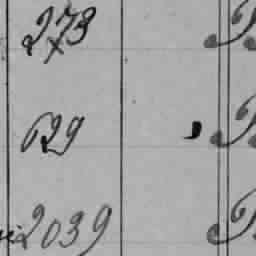 273
629
2039